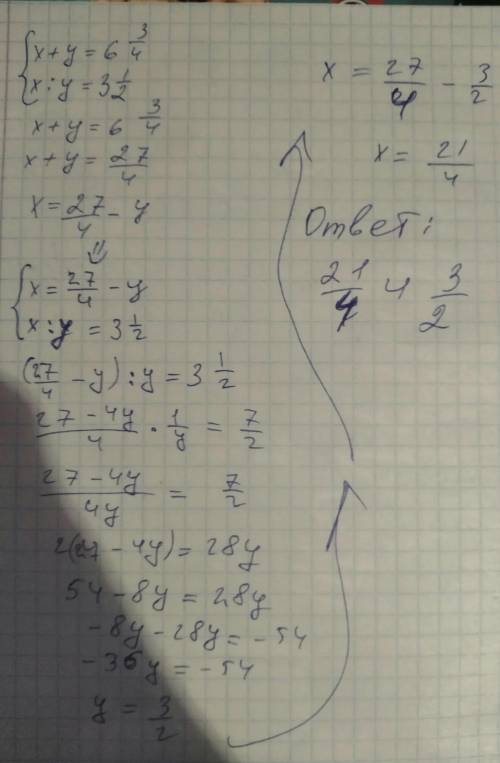 x+y = 6 3/4
x:y = 3 1/2
x+y = 6 3/4
x+y = 27/4
x = 27/4 - y
⇓
x = 27/4 - y
x:y = 3 1/2
(27/4 - y) : y = 3 1/2
27-4y/4 · 1/y = 7/2
27-4y/4y = 7/2
2(27-4y) = 28y
54-8y = 28y
-8y-28y = -54
-36y = -54
y = 3/2
x = 27/4 - 3/2
x = 21/4
Ответ:
21/4 и 3/2